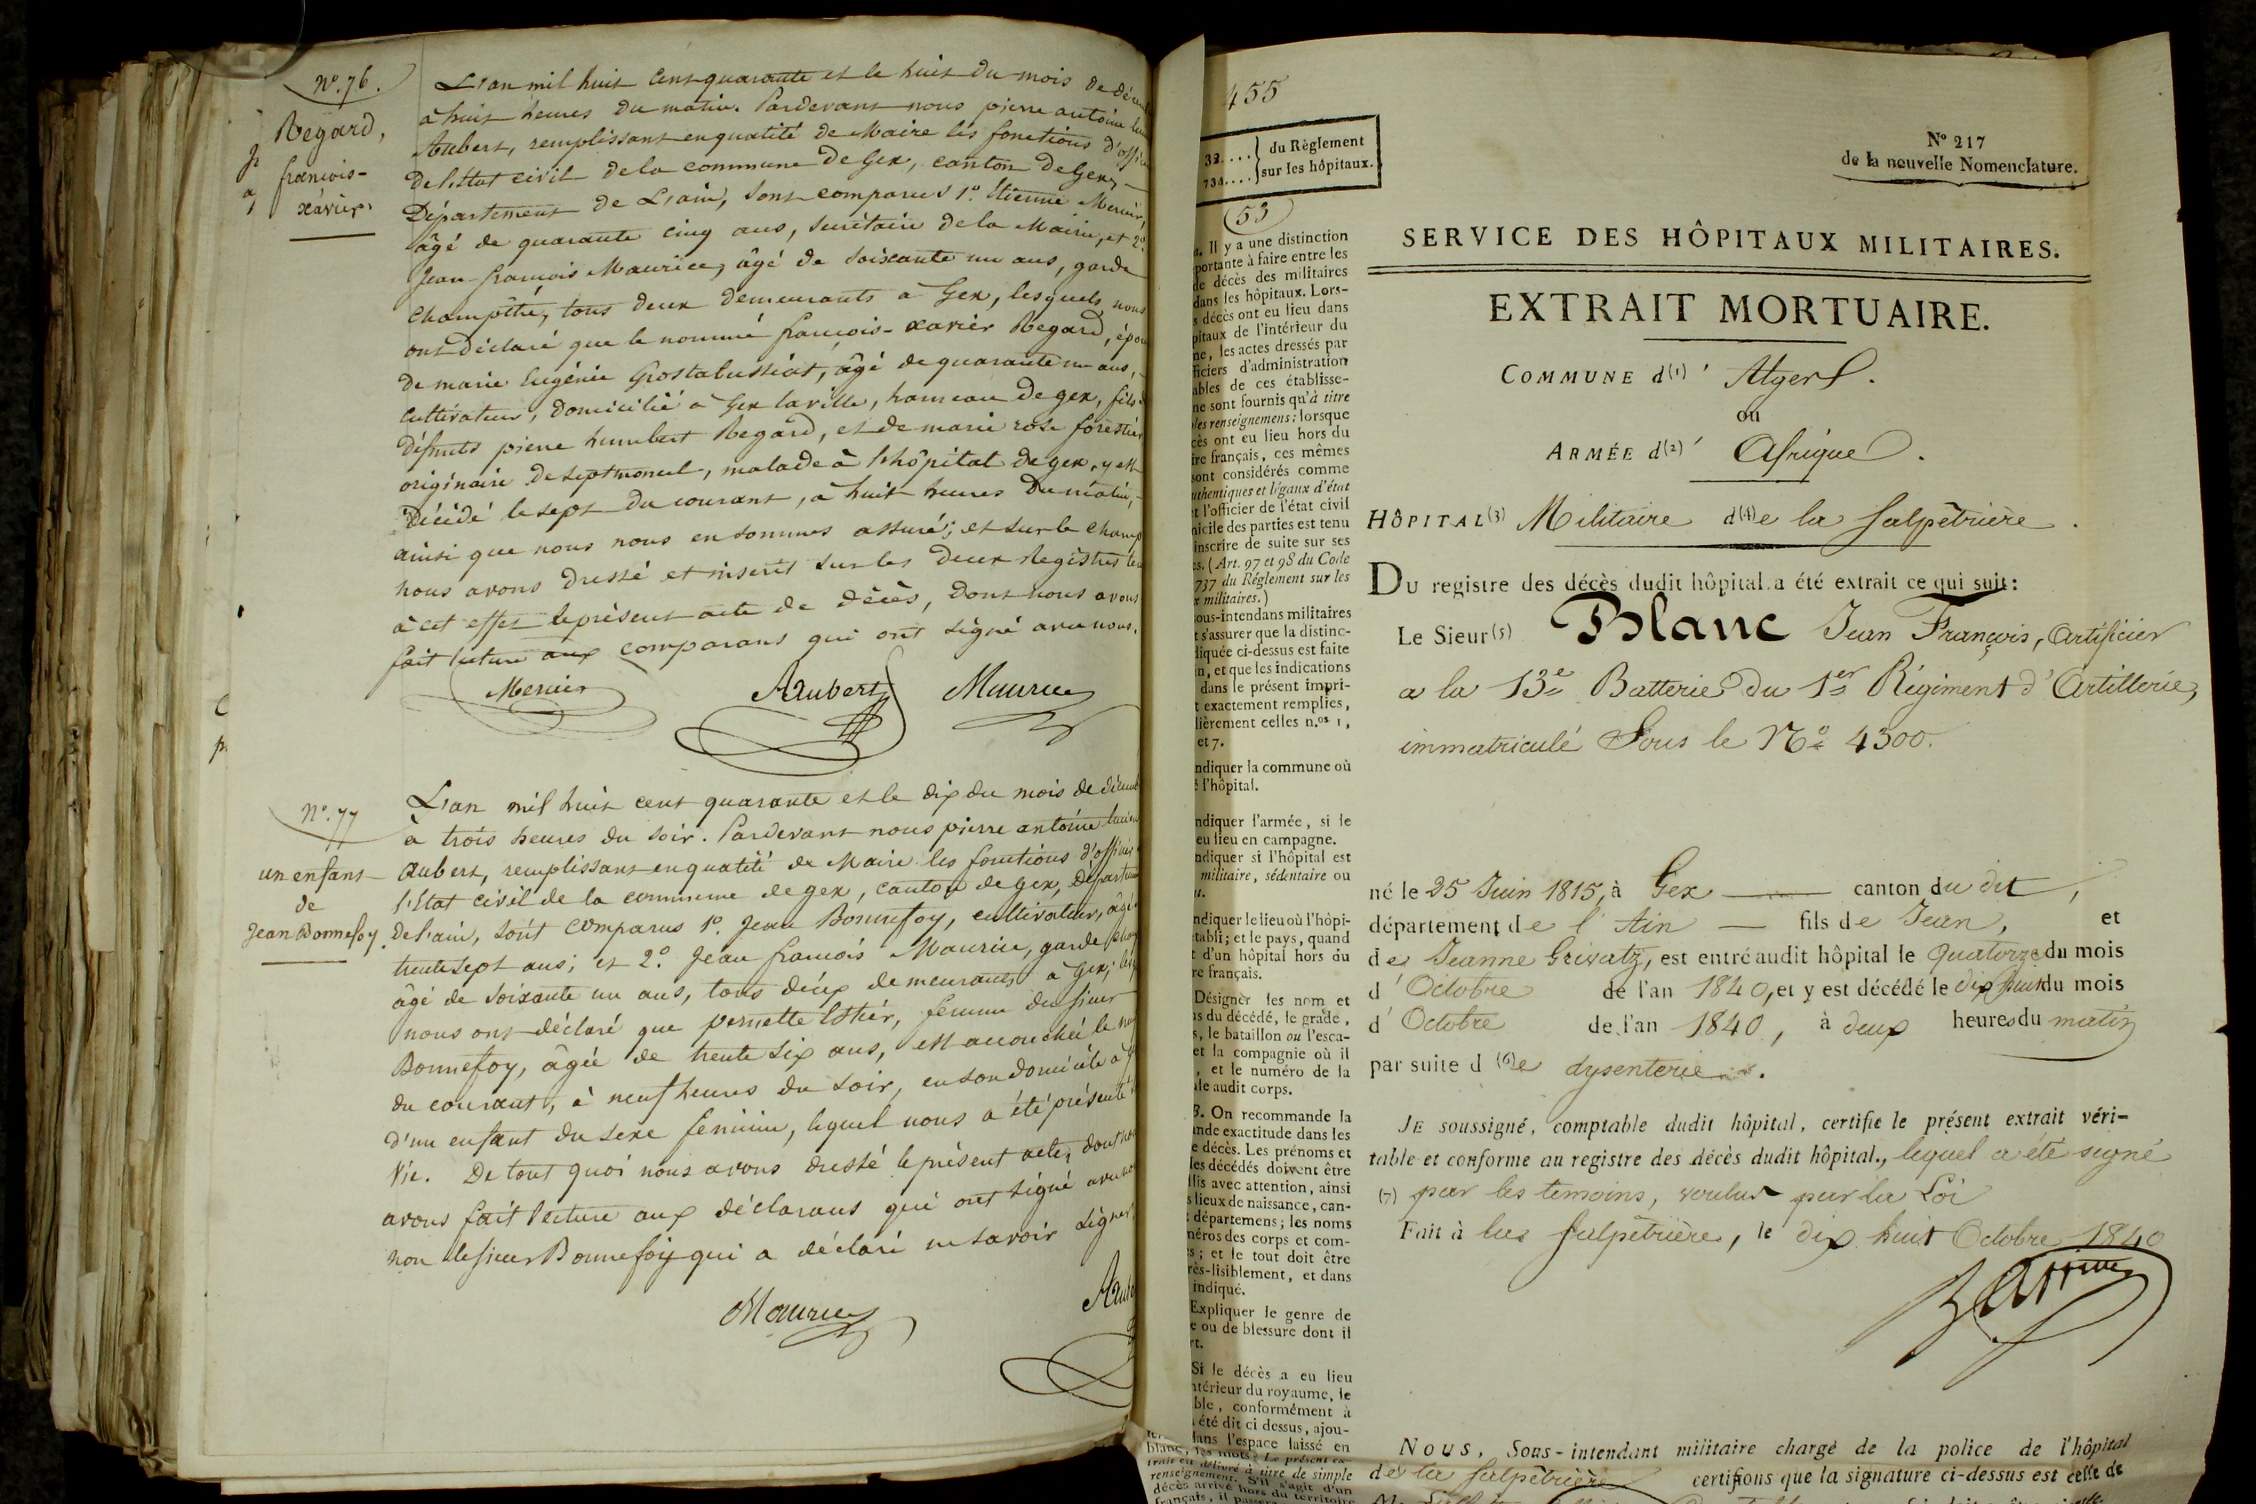 Nº. 76.
Regard,
françois-
xavier.
L'an mil huit cent quarante et le huit du mois de
à huit heures du matin. Pardevant nous pierre antoine
Aubert, remplissant en qualité de Maire les fonctions
de l'Etat civil de la commune de Gex, canton de Gex,
Département de L'ain, sont comparus 1º. Etienne Mercier,
âgé de quarante cinq ans, secrétaire de la Mairie, et 2º.
Jean-françois Maurice, âgé de soixante un ans, garde
champêtre, tous deux demeurants à Gex, lesquels nous
ont déclaré que le nommé françois-xavier Regard,
de marie Eugénie Grostabussiat, âgé de quarante un ans,
cultivateur, domicilié à Gex la ville, hameau de gex, fils
défunts pierre humbert Regard, et de marie rose forestier
originaire de septmoncel, malade à l'hôpital de gex, y est
décédé le sept du courant, à huit heures du matin,
ainsi que nous nous en sommes assuré; et sur le champ
nous avons dressé et inscrit sur les deux Registres
à cet effet le présent acte de décès, dont nous avons
fait lecture aux comparans qui ont signé avec nous.
Mercier Aubert Maurice
Nº. 77
un enfant
de
Jean Bonnefoy.
L'an mil huit cent quarante et le dix du mois de
à trois heures du soir. Pardevant nous pierre antoine
Aubert, remplissant en qualité de Maire les fonctions
l'Etat civil de la commune de gex, canton de gex,
De l'ain, sont comparus 1º. Jean Bonnefoy, cultivateur,
trente sept ans; et 2º. Jean françois Maurice, garde
âgé de soixante un ans, tous deux demeurants à Gex;
nous ont déclaré que pernette Estier, femme du sieur
Bonnefoy, âgée de trente six ans, est accouchée le
du courant, à neuf heures du soir, en son domicile à
d'un enfant du sexe féminin, lequel nous a été présenté
vie. De tout quoi nous avons dressé le présent acte, dont
avons fait lecture aux déclarans qui ont signé
non le sieur Bonnefoy qui a déclaré ne savoir signer.
Maurice
455
du Règlement
sur les hôpitaux.
(53)
Il y a une distinction
à faire entre les
décès des militaires
dans les hôpitaux. Lors-
décès ont eu lieu dans
de l'intérieur du
les actes dressés par
d'administration
de ces établisse-
ne sont fournis qu'à titre
renseignemens; lorsque
ont eu lieu hors du
français, ces mêmes
sont considérés comme
et légaux d'état
l'officier de l'état civil
des parties est tenu
inscrire de suite sur ses
(Art. 97 et 98 du Code
737 du Réglement sur les
militaires.)
militaires
s'assurer que la distinc-
ci-dessus est faite
et que les indications
dans le présent impri-
exactement remplies,
celles n.os 1,
et 7.
la commune où
l'hôpital.
l'armée, si le
eu lieu en campagne.
si l'hôpital est
militaire, sédentaire ou
le lieu où l'hôpi-
et le pays, quand
d'un hôpital hors du
français.
Désigner les nom et
du décédé, le grade,
le bataillon ou l'esca-
et la compagnie où il
et le numéro de la
audit corps.
On recommande la
exactitude dans les
décès. Les prénoms et
décédés doivent être
avec attention, ainsi
lieux de naissance, can-
départemens; les noms
des corps et com-
et le tout doit être
très-lisiblement, et dans
indiqué.
Expliquer le genre de
ou de blessure dont il
Si le décès a eu lieu
du royaume, le
conformément à
été dit ci dessus, ajou-
dans l'espace laissé en
blanc, les mots: Le présent ex-
trait est délivré à titre de simple
renseignement. S'il s'agit d'un
décès arrivé hors du territoire
français, il
Nº 217
de la nouvelle Nomenclature.
SERVICE DES HÔPITAUX MILITAIRES.
EXTRAIT MORTUAIRE.
COMMUNE d(1)' Alger.
ou
ARMÉE d(2)' Afrique.
HÔPITAL(3) Militaire d(4)e la Salpêtrière.
Du registre des décès dudit hôpital a été extrait ce qui suit:
Le Sieur(5) Blanc Jean François, Artificier
a la 13e Batterie du 1er Régiment d'Artillerie,
immatriculé Sous le Nº 4300.
né le 25 Juin 1815, à Gex canton du dit,
département de l'Ain fils de Jean, et
de Jeanne Grivatz, est entré audit hôpital le quatorze du mois
d'Octobre de l'an 1840, et y est décédé le dix huit du mois
d'Octobre de l'an 1840, à deux heures du matin
par suite d(6)e dysenterie.
JE soussigné, comptable dudit hôpital, certifie le présent extrait véri-
table et conforme au registre des décès dudit hôpital, lequel a été signé
(7) par les temoins, voulus par la Loi
Fait à la Salpêtrière, le dix huit Octobre 1840
NOUS, Sous-intendant militaire chargé de la police de l'hôpital
de la Salpêtrière certifions que la signature ci-dessus est celle de